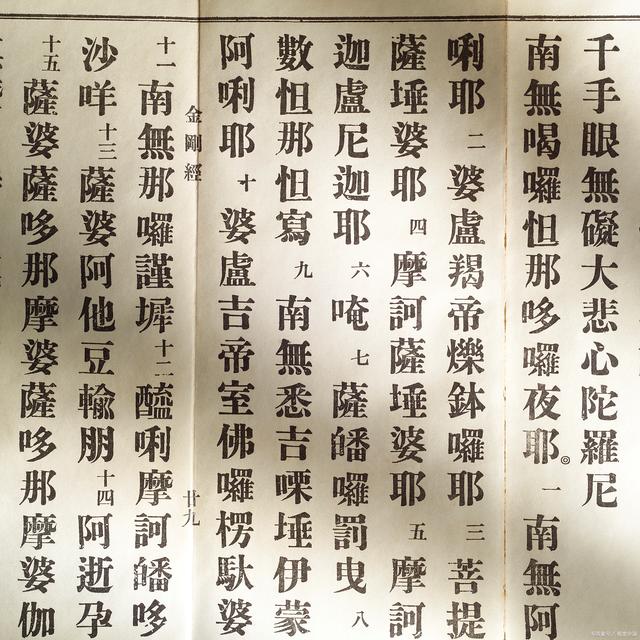 千手眼無礙大悲心陀羅尼
南無喝囉怛那哆囉夜耶。一南無阿
唎耶二婆盧羯帝爍鉢囉耶三菩提
薩埵婆耶四摩訶薩埵婆耶五摩訶
迦盧尼迦耶六唵七薩皤囉罰曳八
數怛那怛寫九南無悉吉㗚埵伊蒙
阿唎耶十婆盧吉帝室佛囉楞馱婆
金剛經
廿九
十一南無那囉謹墀十二醯唎摩訶皤哆
沙咩十三薩婆阿他豆輸朋十四阿逝孕
十五薩婆薩哆那摩婆薩哆那摩婆伽